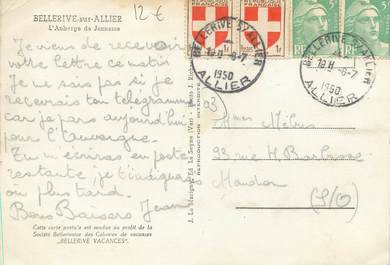 BELLERIVE-sur-ALLIER
L'Auberge de Jeunesse
12€
Je viens de recevoir
votre lettre ce matin
Je ne sais pas si je
recevrais ton télégramme
car je pars aujourd'hui
pour l'Auvergne.
Tu m'écriras en poste
restante; je t'indiquerais
ou plus tard.
Bons Baisers Jean
Cette carte postale est vendue au profit de la
Société Bellerivoise des Colonies de vacances
"BELLERIVE VACANCES".
REPRODUCTION INTERDITE
BELLERIVE S/ ALLIER
18H -6-7
1950
ALLIER
BELLERIVE S/ ALLIER
18H -6-7
1950
ALLIER
1F
1F
5F
93
Mme
93 rue H. Barbusse
Meudon
(S/O)